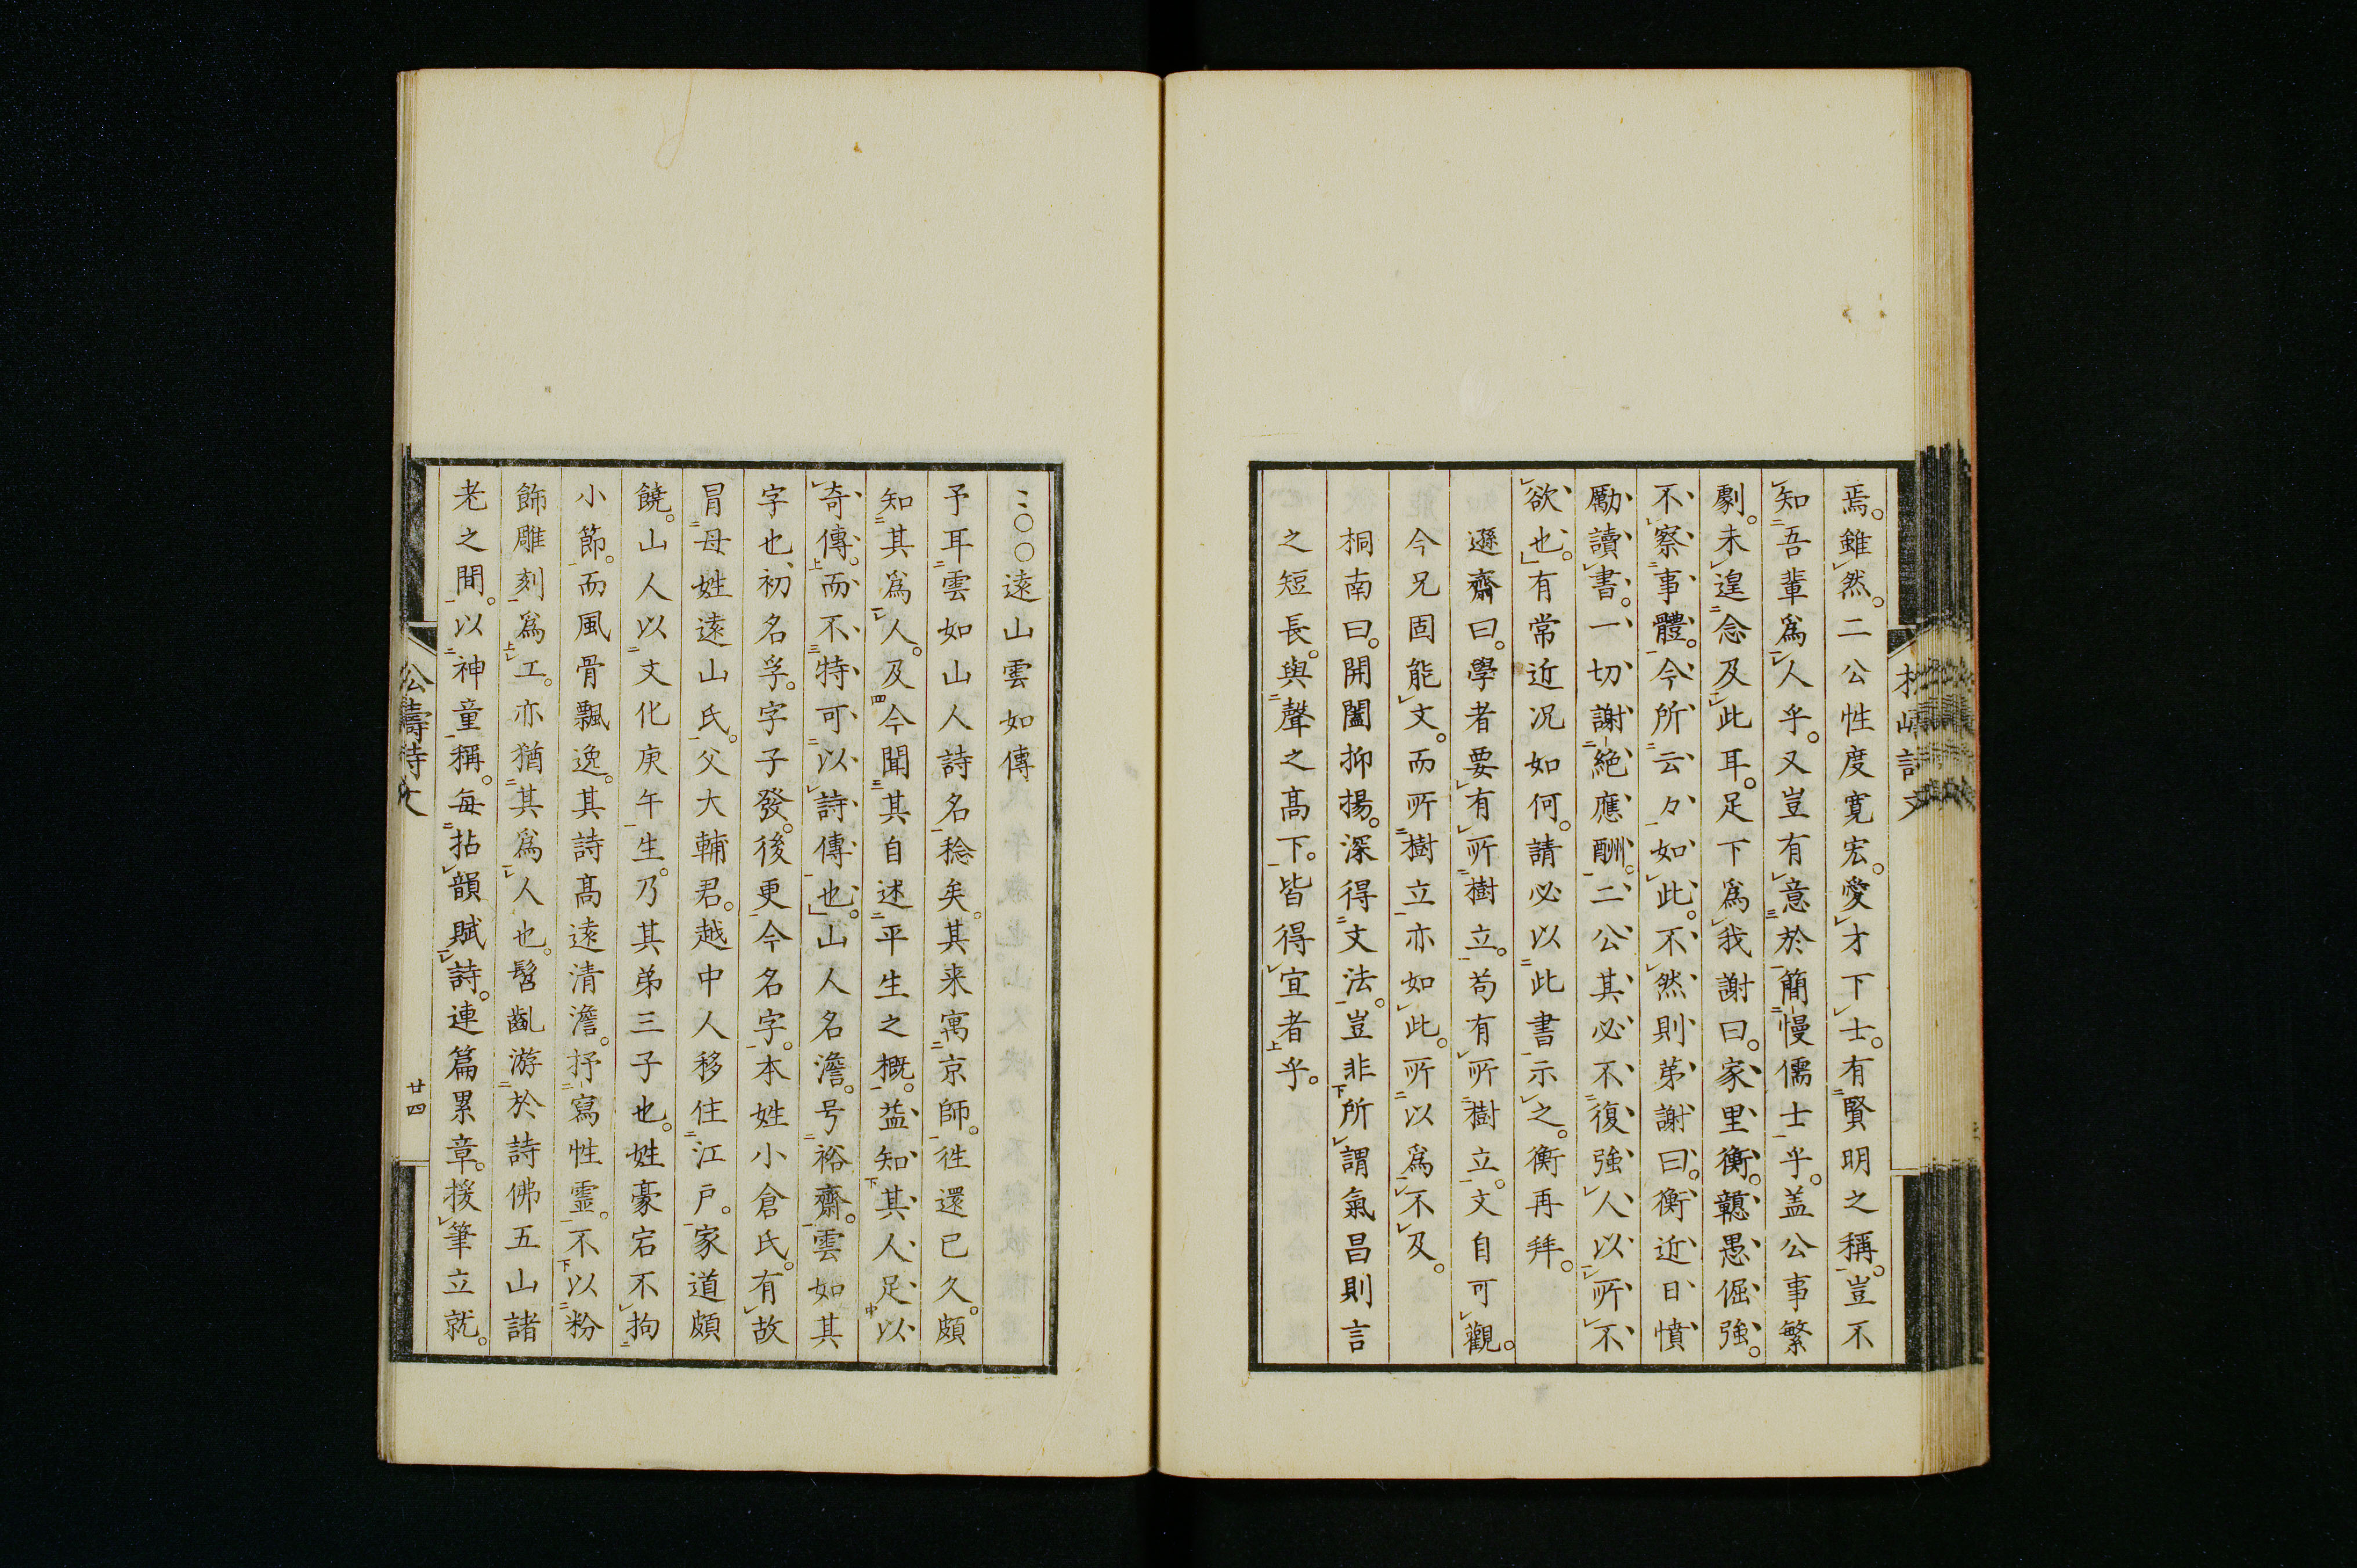 焉。雖然。二公性度寬宏。愛才下士。有賢明之稱。豈不
知吾輩爲人乎。又豈有意於簡慢儒士乎。盖公事繁
劇。未遑念及此耳。足下爲我謝曰。家里衡。戇愚倔強。
不察事體。今所云々如此。不然則弟謝曰。衡近日憤
勵讀書。一切謝絶應酬。二公其必不復強人以所不
欲也。」有常近況如何。請必以此書示之。衡再拜。
遜齋曰。學者要有所樹立。苟有所樹立。文自可觀。
今兄固能文。而所樹立亦如此。所以爲不及。
桐南曰。開闔抑揚。深得文法。豈非所謂氣昌則言
之短長。與聲之高下。皆得宜者乎。
遠山雲如傳
予耳雲如山人詩名稔矣。其来寓京師。徃還已久。頗
知其爲人。及今聞其自述平生之概。益知其人足以
奇傳。而不特可以詩傳也。」山人名澹。号裕齋。雲如其
字也、初名孚。字子發。後更今名字。本姓小倉氏。有故
冐母姓遠山氏。父大輔君。越中人移住江戸。家道頗
饒。山人以文化庚午生。乃其弟三子也。姓豪宕不拘
小節。而風骨飄逸。其詩高遠清澹。抒寫性霊。不以粉
飾雕刻爲工。亦猶其爲人也。髫齓游於詩佛五山諸
老之間。以神童稱。毎拈韻賦詩。連篇累章。援筆立就。
廿四